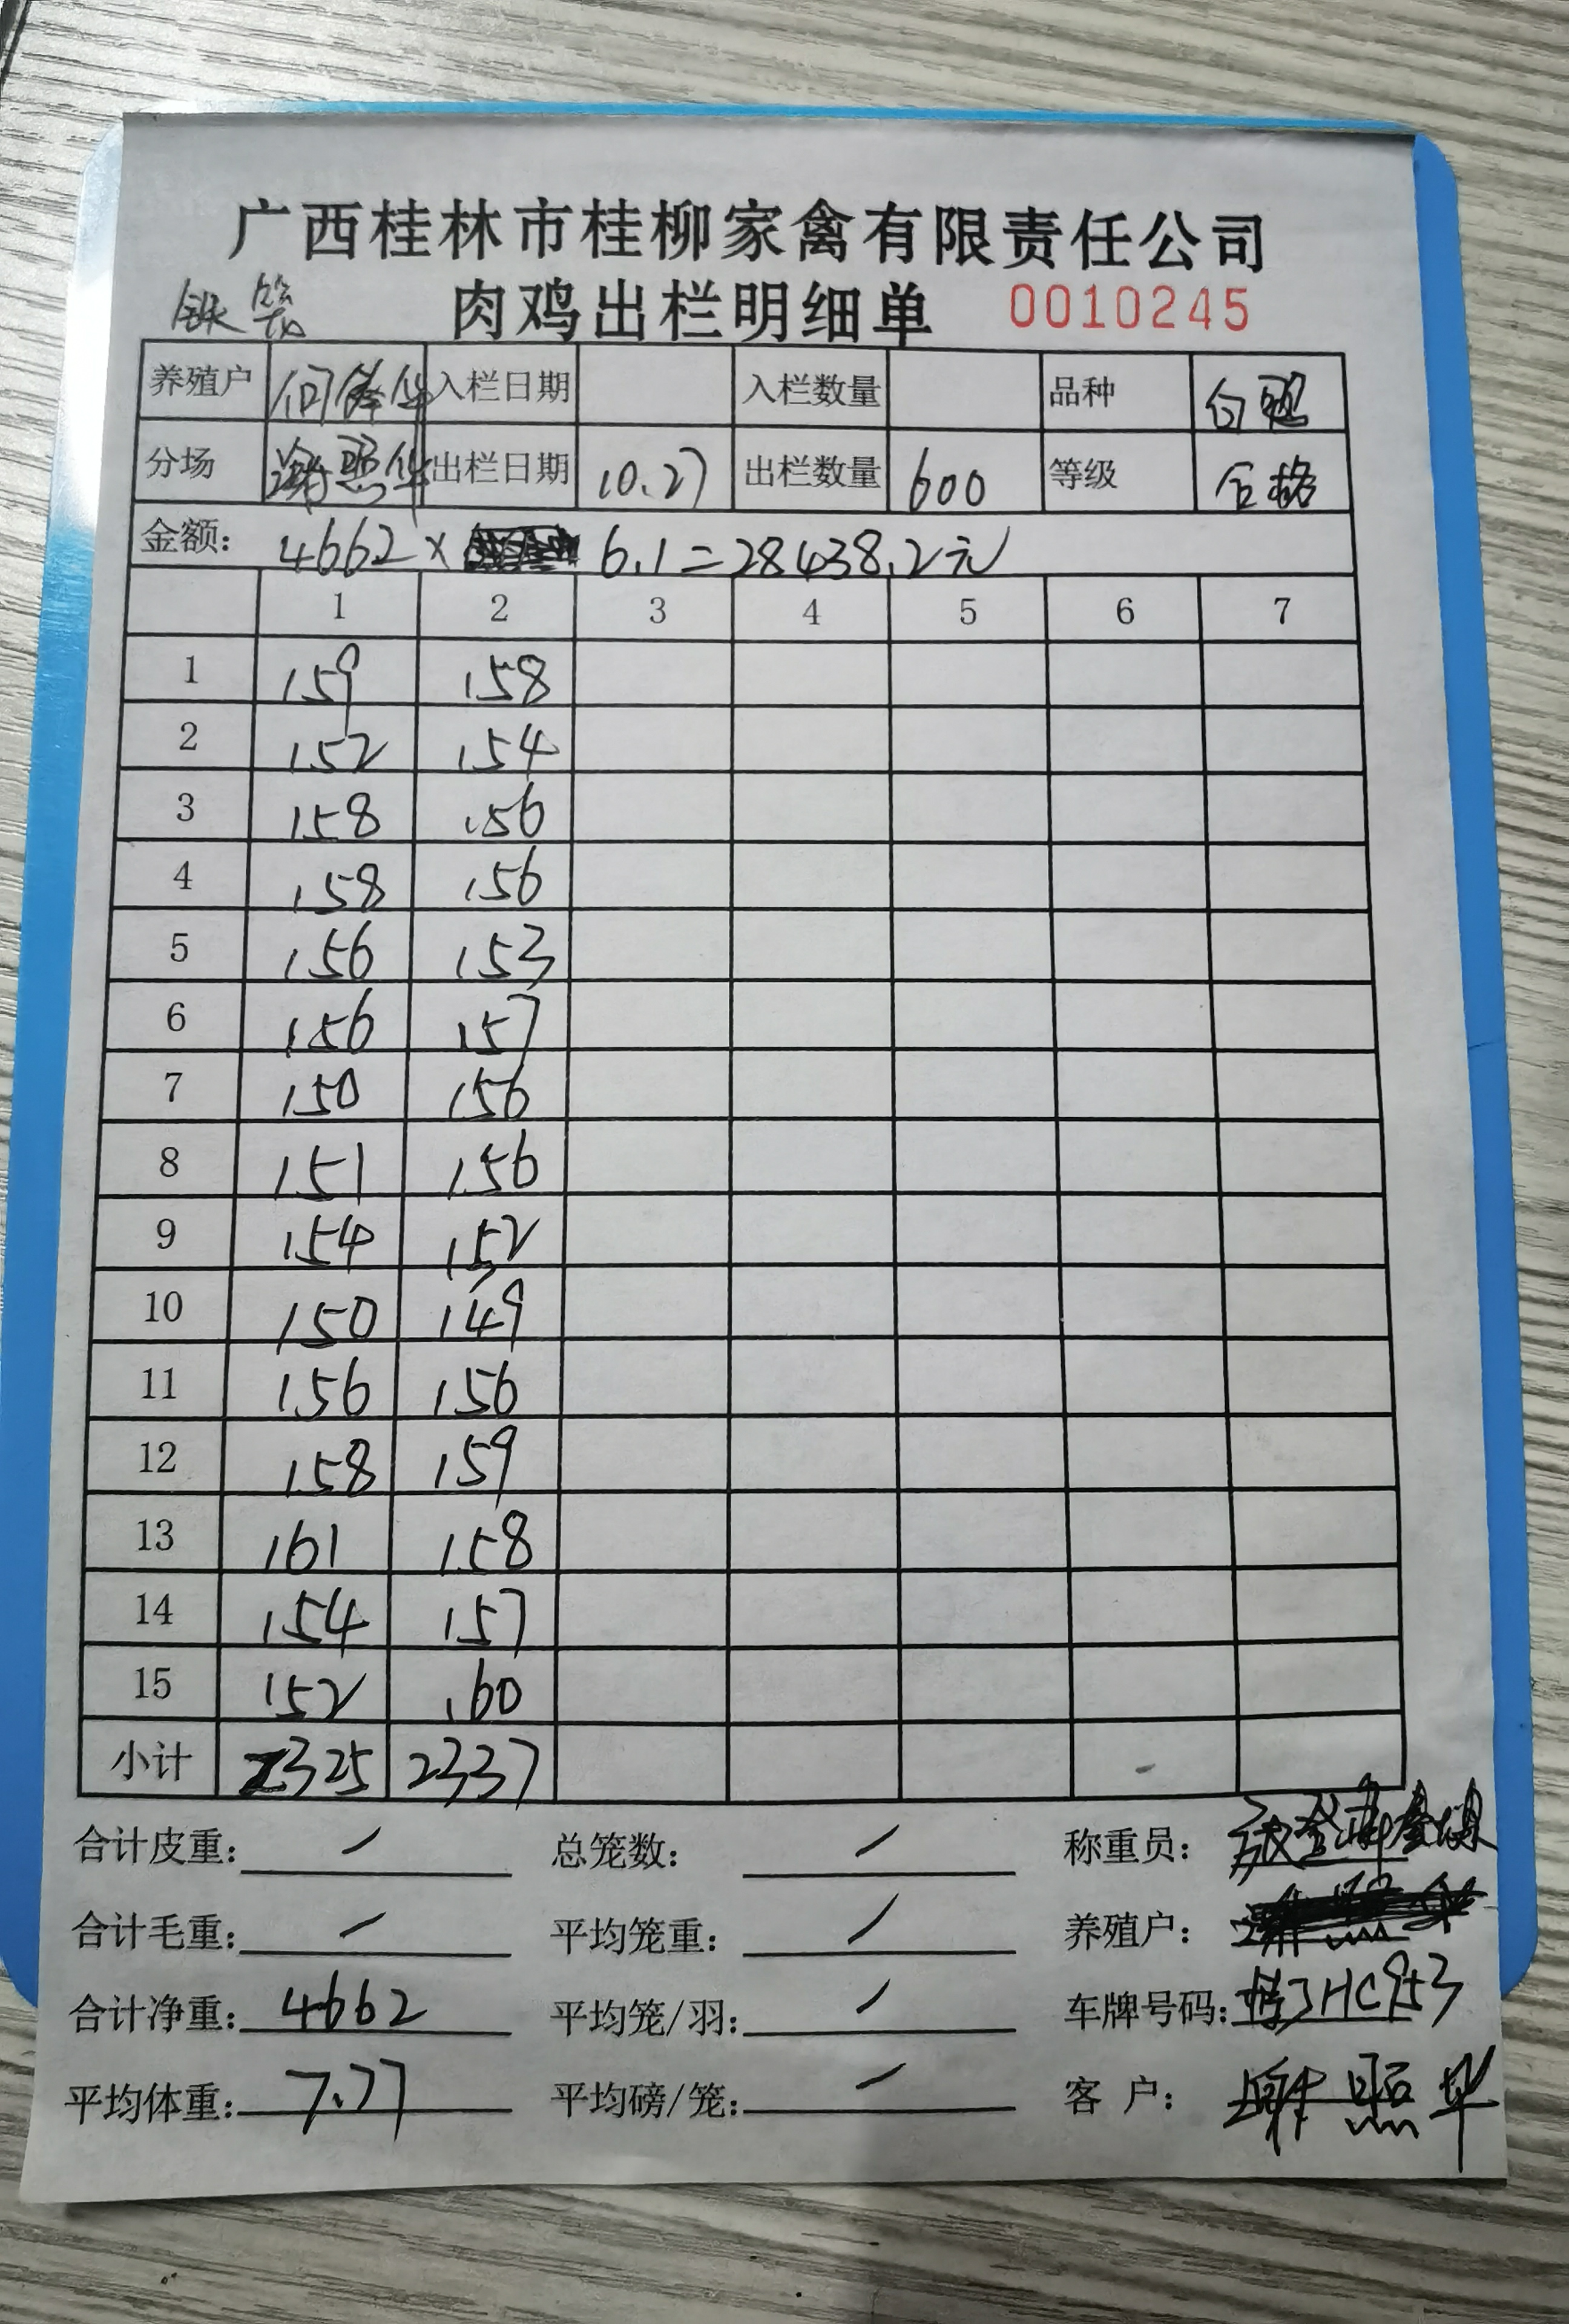 广西桂林市桂柳家禽有限责任公司
铁笼 肉鸡出栏明细单 0010245
养殖户 入栏日期 入栏数量 品种
分场 谢照华 出栏日期 10.27 出栏数量 600 等级 合格
金额: 4662× 6.1=28438.2元
1 2 3 4 5 6 7
1 159 158
2 152 154
3 158 156
4 158 156
5 156 153
6 156 157
7 150 156
8 151 156
9 154 152
10 150 149
11 156 156
12 158 159
13 161 158
14 154 157
15 152 160
小计 2325 2337
合计皮重: / 总笼数: / 称重员:
合计毛重: / 平均笼重: / 养殖户:
合计净重: 4662 平均笼/羽: / 车牌号码: JHC953
平均体重: 7.77 平均磅/笼: / 客 户: 谢照华